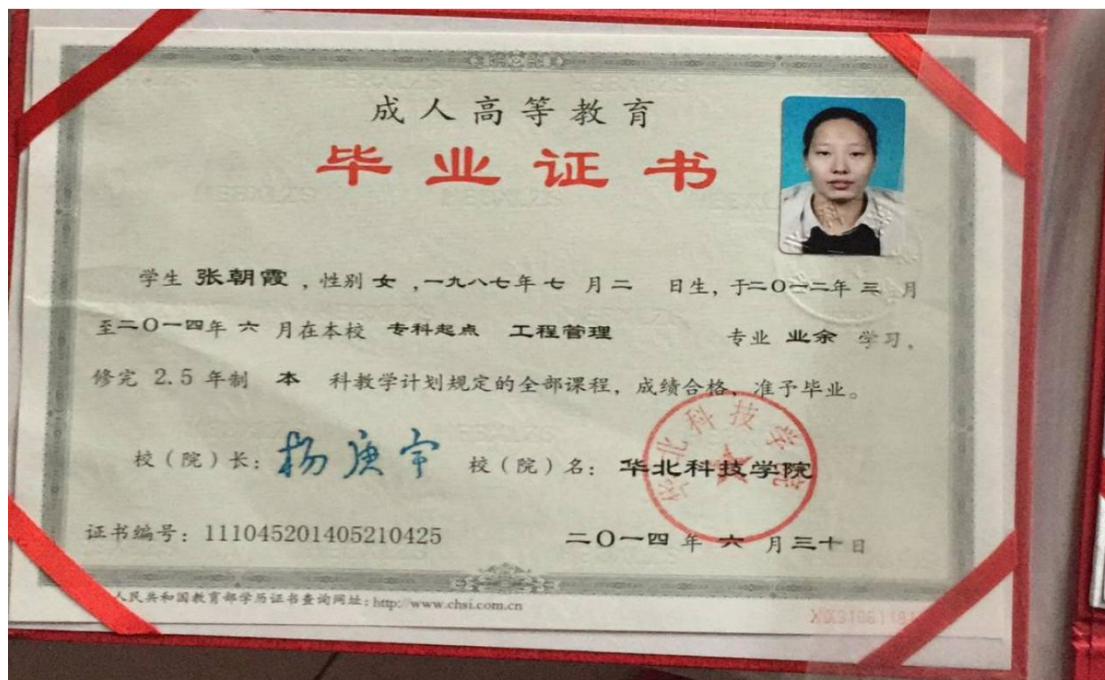 成人高等教育
毕业证书
学生 张朝霞 ，性别 女 ，一九八七年 七 月 二 日生，于二〇一二年 三 月
至二〇一四年 六 月在本校 专科起点 工程管理 专业 业余 学习，
修完 2.5 年制 本 科教学计划规定的全部课程，成绩合格，准予毕业。
校（院）长：杨庚宇 校（院）名：华北科技学院
华北科技学院
证书编号：111045201405210425 二〇一四 年 六 月 三十 日
人民共和国教育部学历证书查询网址：http://www.chsi.com.cn